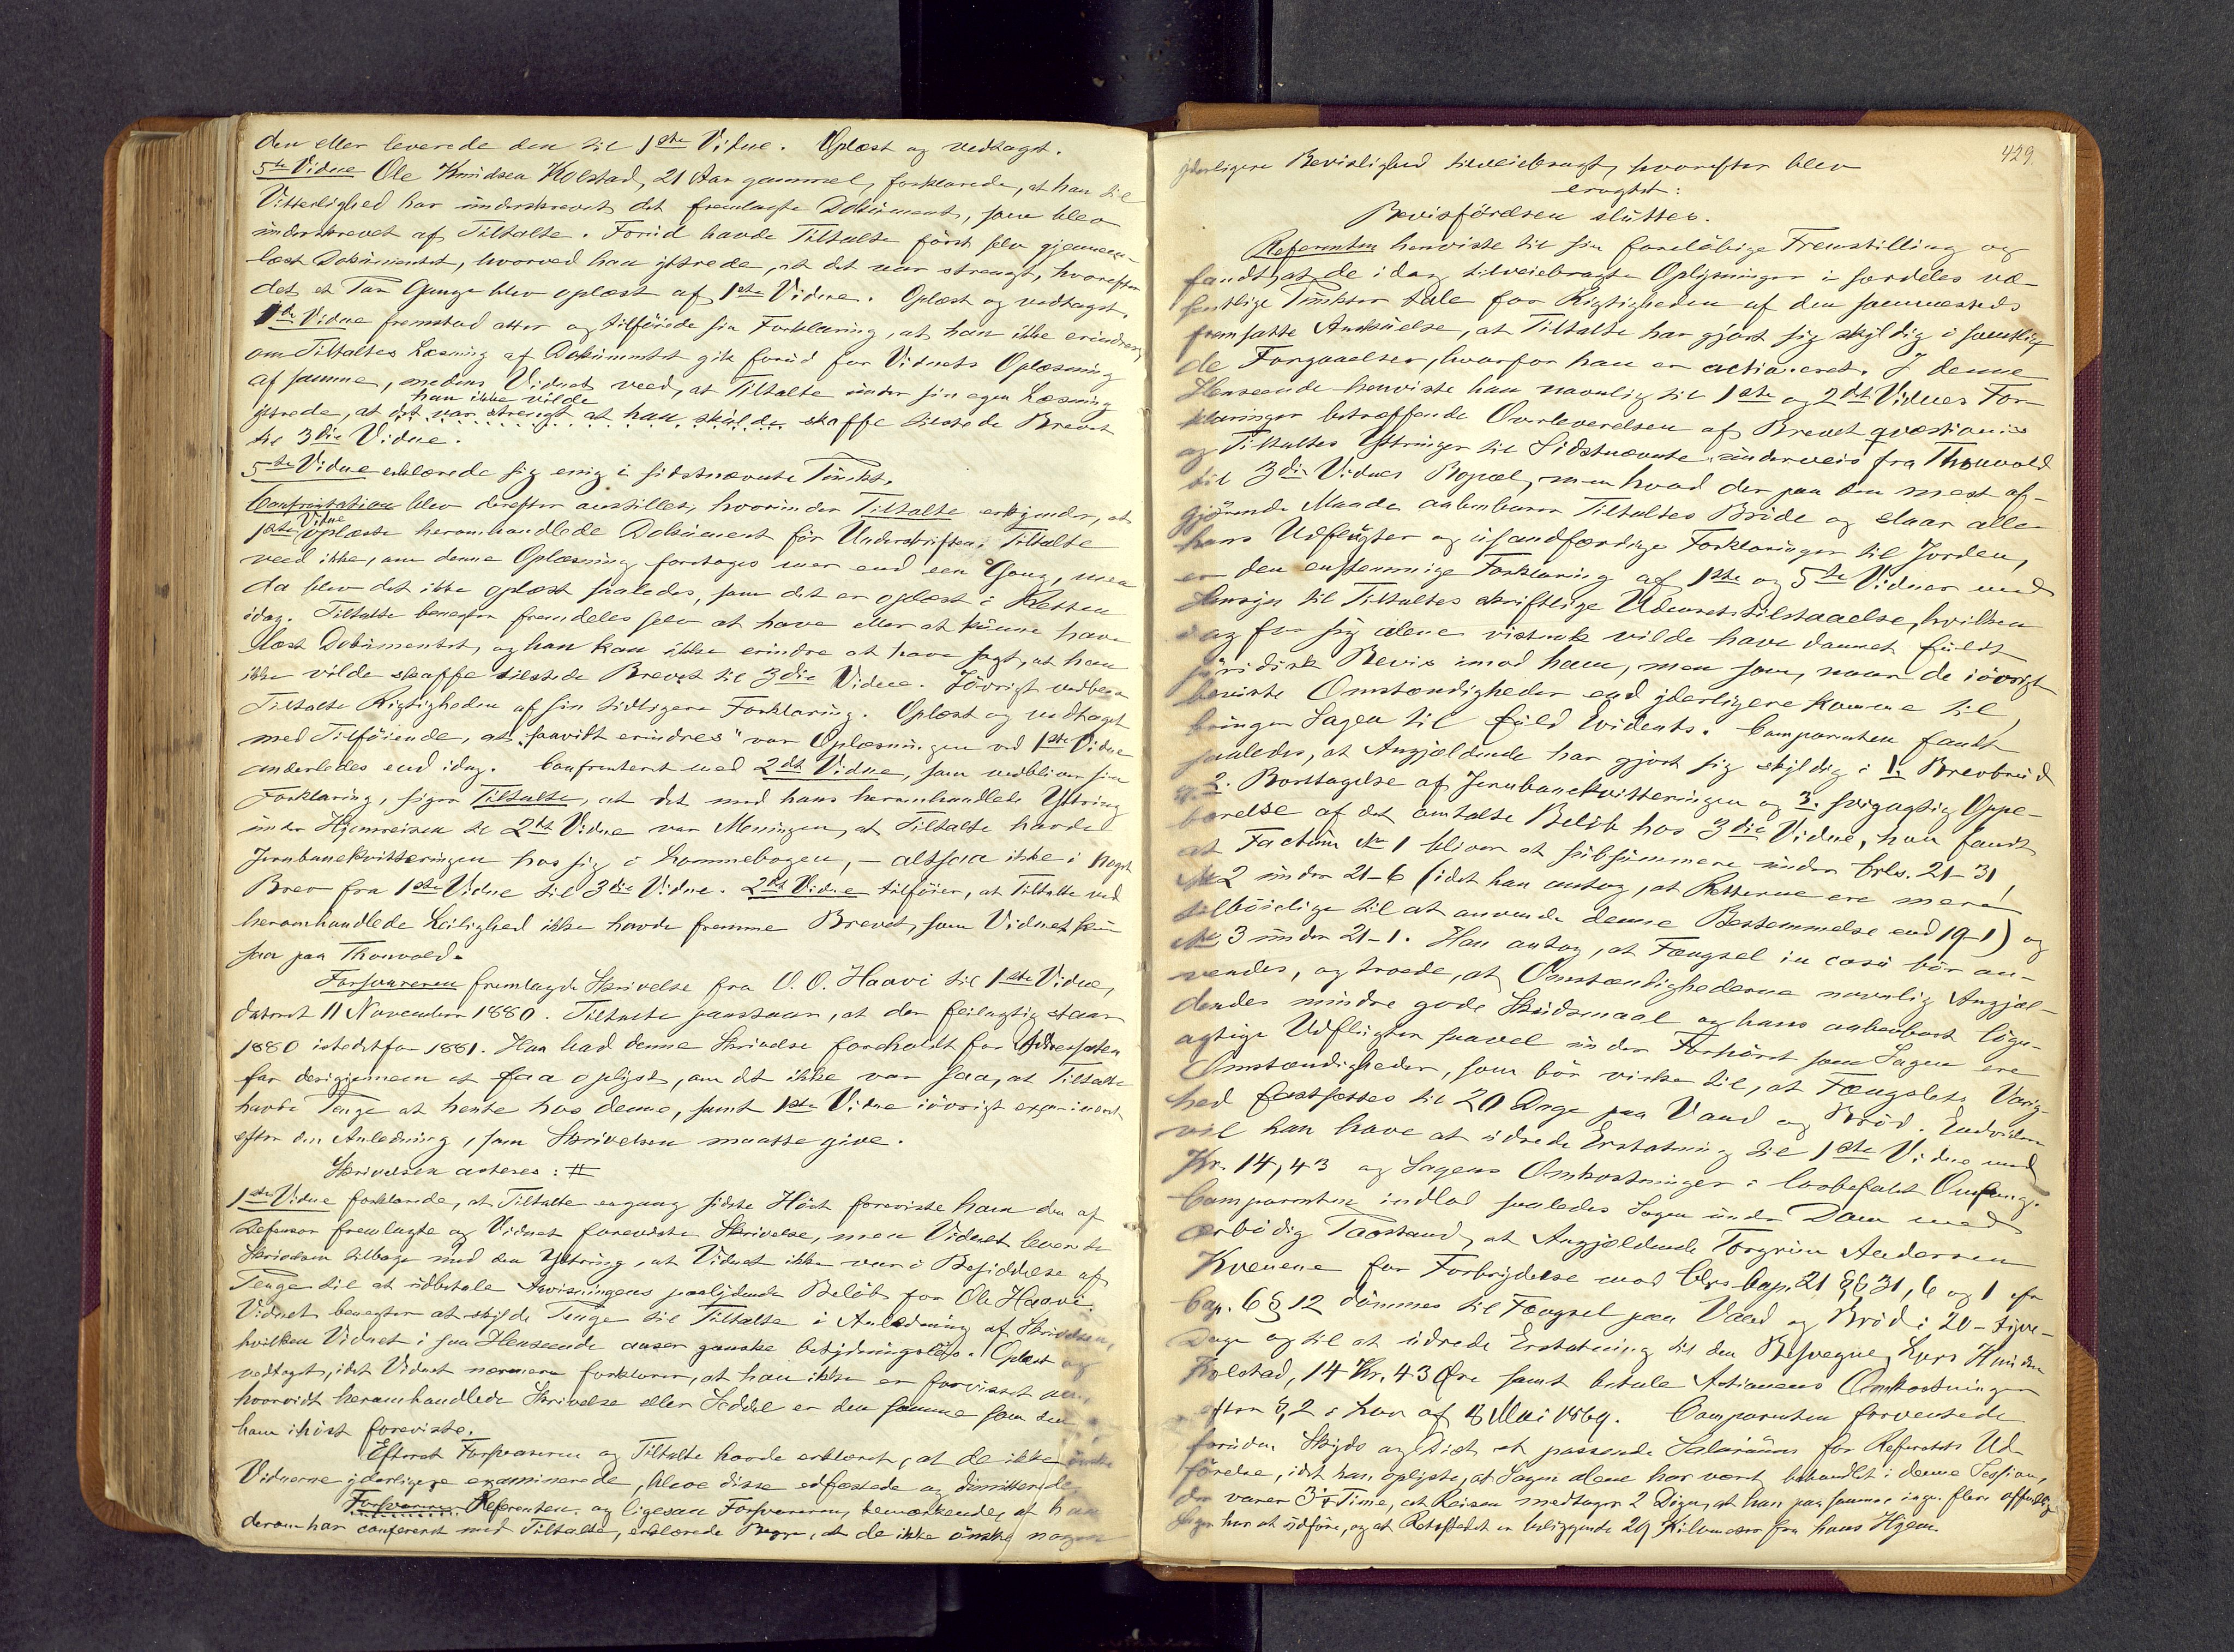 den eller leverede den til 1ste Vidne. Oplæst og vedtaget.
5te Vidne Ole Knudsen Kolstad, 21 Aar gammel, forklarede, at han til
Vitterlighed har underskrevet det fremlagte Dokument, som blev
underskrevet af Tiltalte. Forud havde Tiltalte först selv gjennem-
læst Dokumentet, hvorved han yttrede, at det var strengt, hvorefter
det et Par Gange blev oplæst af 1ste Vidne. Oplæst og vedtaget.
1ste Vidne fremstod atter og tilföiede sin Forklaring, at han ikke erindrer,
om Tiltaltes Læsning af Dokumentet gik forud for Vidnets Oplæsning
af samme, medens Vidnet veed, at Tiltalte under sin egen Læsning
han ikke vilde
yttrede, at det var strengt at han skulde skaffe tilstede Brevet
til 3die Vidne.
5te Vidne erklærede sig enig i sidstnævnte Punkt.
Confrontation blev derefter anstillet, hvorunder Tiltalte erkjender, at
Vidne
1ste oplæste heromhandlede Dokument för Underskriften. Tiltalte
veed ikke, om denne Oplæsning foretoges mer end een Gang, men
da blev det ikke oplæst saaledes, som det er oplæst i Retten
idag. Tiltalte benegter fremdeles selv at have eller at kunne have
læst Dokumentet, og han kan ikke erindre at have sagt, at han
ikke vilde skaffe tilstede Brevet til 3die Vidne. Iövrigt vedbliver
Tiltalte Rigtigheden af sin tidligere Forklaring. Oplæst og vedtaget
med Tilföiende, at "saavidt erindres" var Oplæsningen ved 1ste Vidne
anderledes end idag. Confronteret med 2det Vidne, som vedbliver sin
Forklaring, siger Tiltalte, at det med hans heromhandlede Yttring
under Hjemreisen til 2det Vidne var Meningen, at Tiltalte havde
Jernbanekvitteringen hos sig i Lommebogen, - altsaa ikke i noget
Brev fra 1ste Vidne til 3die Vidne. 2det Vidne tilföier, at Tiltalte ved
heromhandlede Leilighed ikke havde fremme Brevet, som Vidnet kun
saa paa Thonvold.
Forsvareren fremlagde Skrivelse fra O. O. Haavi til 1ste Vidne,
dateret 11 November 1880. Tiltalte paastaar, at der feilagtig staar
1880 istedetfor 1881. Han bad denne Skrivelse foreholdt for Adressaten
for derigjennem at faa oplyst, om det ikke var saa, at Tiltalte
havde Penge at hente hos denne, samt 1ste Vidne iövrigt examineret
efter den Anledning, som Skrivelsen maatte give.
Skrivelsen acteres: #
1ste Vidne forklarede, at Tiltalte engang sidste Höst foreviste ham den af
Defensor fremlagte og Vidnet foreviste Skrivelse, men Vidnet leverede
Skrivelsen tilbage med den Yttring, at Vidnet ikke var i Besiddelse af
Penge til at udbetale Anvisningens paalydende Belöb for Ole Haavi.
Vidnet benegter at skylde Penge til Tiltalte i Anledning af Skrivelsen,
hvilken Vidnet i saa Henseende anser ganske betydningslös. Oplæst og
vedtaget, idet Vidnet nærmere forklarer, at han ikke er forvisset om,
hvorvidt heromhandlede Skrivelse eller Seddel er den samme som den
ham ihöst foreviste.
Efterat Forsvareren og Tiltalte havde erklæret, at de ikke önske
Vidnerne yderligere examinerede, bleve disse edfæstede og dimitterede.
Forsvareren Referenten og ligesaa Forsvareren, bemærkende, at han
derom har confereret med Tiltalte, erklærede Begge, at de ikke önske nogen
429.
yderligere Bevislighed tilveiebragt, hvorefter blev
eragtet:
Bevisförelsen sluttes.
Referenten henviste til sin foreløbige Fremstilling og
fandt, at de idag tilveiebragte Oplysninger i særdeles væ-
sentlige Punkter tale for Rigtigheden af den sammesteds
fremsatte Anskuelse, at Tiltalte har gjort sig skyldig i samtlige
de Forgaaelser, hvorfor han er actioneret. I denne
Henseende henviste han navnlig til 1ste og 2det Vidnes For-
klaringer betræffende Overleverelsen af Brevet qvæstionis
og Tiltaltes Yttringer til Sidstnævnte underveis fra Thonvold
til 3die Vidnes Bopæl, men hvad der paa den mest af-
gjörende Maade aabenbarer Tiltaltes Bröde og slaar alle
hans Udflugter og usandfærdige Forklaringer til Jorden,
er den enstemmige Forklaring af 1ste og 5te Vidner med
Hensyn til Tiltaltes skriftlige Udenretstilstaaelse, hvilken
i og for sig alene vistnok vilde have dannet fuldt
juridisk Bevis imod ham, men som, naar de iövrigt
beviste Omstændigheder end yderligere komme til,
bringer Sagen til fuld Evidents. Comparenten fandt
saaledes, at Angjældende har gjort sig skyldig i 1. Brevbrud
2. Borttagelse af Jernbanekvitteringen og 3. svigagtig Oppe-
børelse af det omtalte Belöb hos 3die Vidne, han fandt
at Factum No 1 bliver at subsummere under Crls. 21-31,
No 2 under 21-6 (idet han antog, at Retterne ere mere
tilböielige til at anvende denne Bestemmelse end 19-1) og
No 3 under 21-1. Han antog, at Fængsel in casu bör an-
vendes, og troede, at Omstændighederne navnlig Angjæl-
dendes mindre gode Skudsmaal og hans aabenbart lögn-
agtige Udflugter saavel under Forhöret som Sagen ere
Omstændigheder, som bör virke til, at Fængslets Varig-
hed fastsættes til 20 Dage paa Vand og Bröd. Endvidere
vil han have at udrede Erstatning til 1ste Vidne med
Kr. 14,43 og Sagens Omkostninger i lovbefalet Omfang.
Comparenten indlod saaledes Sagen under Dom med
ærbödig Paastand, at Angjældende Torgrim Andersen
Kvenene for Forbrydelse mod Crls. Cap. 21 §§ 31, 6 og 1 cfr
Cap. 6 § 12 dömmes til Fængsel paa Vand og Bröd i 20 - tyve -
Dage og til at udrede Erstatning til den Besvegne, Lars Knudsen
Kolstad, 14 Kr. 43 Öre samt betale Actionens Omkostninger
efter § 2 i Lov af 8 Mai 1869. Comparenten forventede
foruden Skyds og Diæt et passende Salarium for Referatets Ud-
förelse, idet han oplyste, at Sagen alene har været behandlet i denne Session,
der varer Time, at Reisen medtager 2 Dage, at han paa samme ingen flere offentlige
Sager har at udføre, og at Retsstedet er beliggende 29 Kilometer fra hans Hjem.